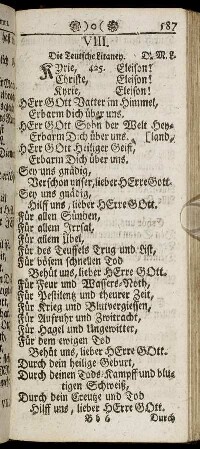 )o( 587
VIII.
Die Teutsche Litaney. D. M. L.
Kyrie, 425. Eleison!
Christe, Eleison!
Kyrie, Eleison!
HErr GOtt Vatter im Himmel,
Erbarm dich über uns.
HErr GOtt Sohn der Welt Hey-
Erbarm Dich über uns. [land,
HErr GOtt Heiliger Geist,
Erbarm Dich über uns.
Sey uns gnädig,
Verschon unser, lieber HErre Gott.
Sey uns gnädig,
Hilff uns, lieber HErre GOtt.
Für allen Sünden,
Für allem Irrsal,
Für allem Übel,
Für des Teuffels Trug und List,
Für bösem schnellen Tod
Behüt uns, lieber HErre GOtt.
Für Feur und Wassers-Noth,
Für Pestilentz und theurer Zeit,
Für Krieg und Blutvergiessen,
Für Aufruhr und Zwitracht,
Für Hagel und Ungewitter,
Für dem ewigen Tod
Behüt uns, lieber HErre GOtt.
Durch dein heilige Geburt,
Durch deinen Tods-Kampff und blu-
tigen Schweiß,
Durch dein Creutze und Tod
Hilff uns, lieber HErre GOtt.
Bb 6 Durch